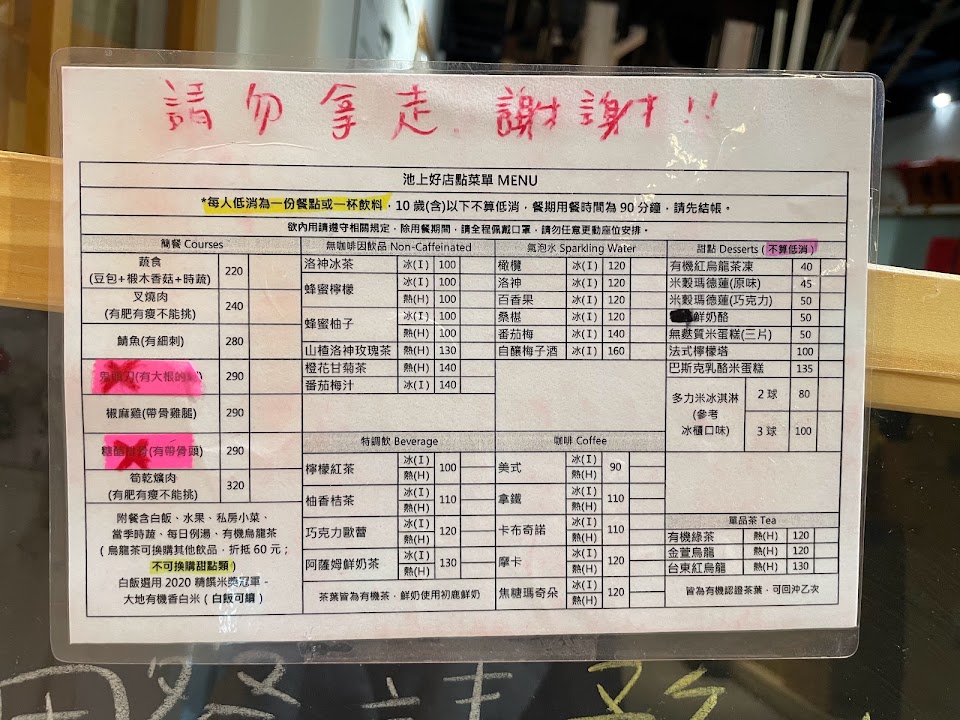 請勿拿走. 謝謝!!
池上好店點菜單 MENU
*每人低消為一份餐點或一杯飲料，10 歲(含)以下不算低消，餐期用餐時間為 90 分鐘，請先結帳。
欲內用請遵守相關規定，除用餐期間，請全程佩戴口罩，請勿任意更動座位安排。
簡餐 Courses
蔬食
(豆包+椴木香菇+時蔬) 220
叉燒肉
(有肥有瘦不能挑) 240
鯖魚(有細刺) 280
(有大根的 290
椒麻雞(帶骨雞腿) 290
(有帶骨頭) 290
筍乾爌肉
(有肥有瘦不能挑) 320
附餐含白飯、水果、私房小菜、
當季時蔬、每日例湯、有機烏龍茶
( 烏龍茶可換購其他飲品，折抵 60 元；
不可換購甜點類 )
白飯選用 2020 精饌米獎冠軍 -
大地有機香白米 ( 白飯可續 )
無咖啡因飲品 Non-Caffeinated
洛神冰茶 冰(I) 100
蜂蜜檸檬 冰(I) 100
熱(H) 100
蜂蜜柚子 冰(I) 100
熱(H) 100
山楂洛神玫瑰茶 熱(H) 130
橙花甘菊茶 熱(H) 140
番茄梅汁 冰(I) 140
特調飲 Beverage
檸檬紅茶 冰(I) 熱(H) 100
柚香桔茶 冰(I) 熱(H) 110
巧克力歐蕾 冰(I) 熱(H) 120
阿薩姆鮮奶茶 冰(I) 熱(H) 130
茶葉皆為有機茶，鮮奶使用初鹿鮮奶
氣泡水 Sparkling Water
橄欖 冰(I) 120
洛神 冰(I) 120
百香果 冰(I) 120
桑椹 冰(I) 120
番茄梅 冰(I) 140
自釀梅子酒 冰(I) 160
咖啡 Coffee
美式 冰(I) 熱(H) 90
拿鐵 冰(I) 熱(H) 110
卡布奇諾 冰(I) 熱(H) 110
摩卡 冰(I) 熱(H) 120
焦糖瑪奇朵 冰(I) 熱(H) 120
甜點 Desserts ( 不算低消 )
有機紅烏龍茶凍 40
米穀瑪德蓮(原味) 45
米穀瑪德蓮(巧克力) 50
鮮奶酪 50
無麩質米蛋糕(三片) 50
法式檸檬塔 100
巴斯克乳酪米蛋糕 135
多力米冰淇淋
(參考
冰櫃口味)
2 球 80
3 球 100
單品茶 Tea
有機綠茶 熱(H) 120
金萱烏龍 熱(H) 120
台東紅烏龍 熱(H) 130
皆為有機認證茶葉，可回沖乙次